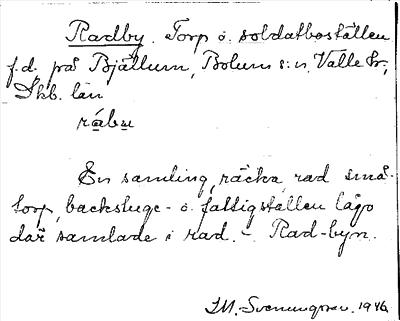 Radby. Torp o. soldatboställen
f.d. på Bjällum, Bolum s:n, Valle hr,
Skb. län
råbu
En samling, räcka, rad små-
torp, backstuge- o. fattigställen lågo
där samlade i rad. - Rad-byn.
I.M. Svenungsson. 1946